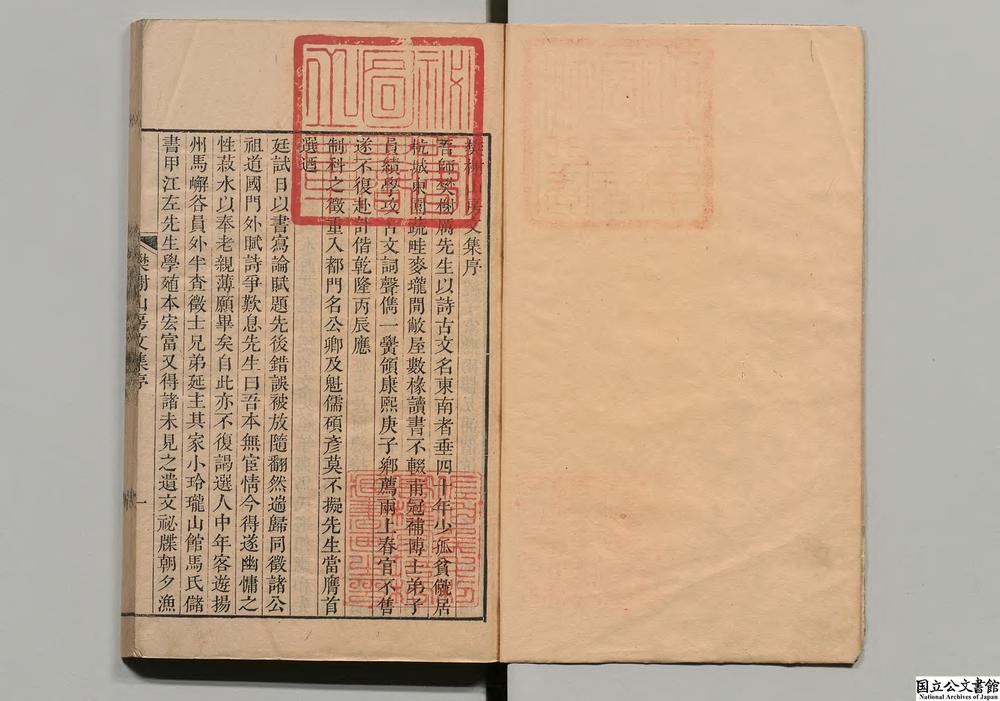 樊榭山房文集序
吾師樊榭厲先生以詩古文名東南者垂四十年少孤貧僦居
杭城東園蔬畦麥壠間敝屋數椽讀書不輟甫冠補博士弟子
員績學攻古文詞聲儁一黌領康熙庚子鄉薦兩上春官不售
遂不復赴計偕乾隆丙辰應
制科之徵重入都門名公卿及魁儒碩彥莫不擬先生當膺首
選迺
廷試日以書寫論賦題先後錯誤被放隨翻然遄歸同徵諸公
祖道國門外賦詩爭歎息先生曰吾本無宦情今得遂幽慵之
性菽水以奉老親薄願畢矣自此亦不復謁選人中年客遊揚
州馬嶰谷員外半查徵士兄弟延主其家小玲瓏山館馬氏儲
書甲江左先生學殖本宏富又得諸未見之遺文祕牒朝夕漁
樊榭山房文集序
一
国立公文書館
National Archives of Japan